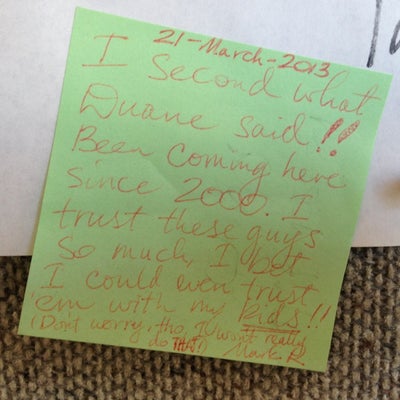 21-March-2013
I second what
Duane said!!
Been coming here
since 2000. I
trust these guys
so much, I bet
I could even trust
'em with my kids!!
(Don't worry, tho, I won't really
do THAT!) Mark R.